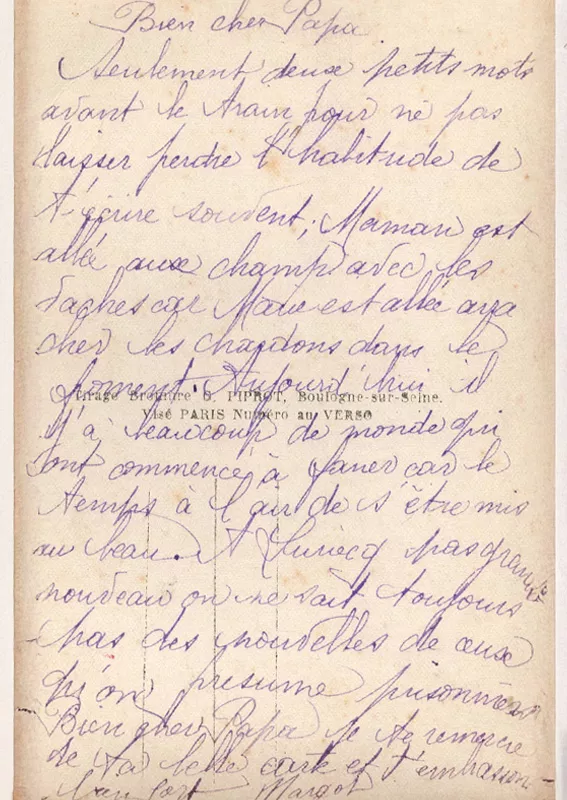 Bien cher Papa
Seulement deux petits mots
avant le train pour ne pas
laisser perdre l'habitude de
t'écrire souvent; Maman est
allée aux champs avec les
vaches car Marie est allée ara
cher les chardons dans le
froment. Aujourd'hui il
Tirage Bromure G. PIPROT, Boulogne-sur-Seine.
Visé PARIS Numéro au VERSO
y'à beaucoup de monde qui
ont commencé à faner car le
temps à l'air de s'être mis
au beau. A pas grand
nouveau on ne sait toujours
pas des nouvelles de ceux
qu'on présume prisonniers
Bien cher Papa je te remercie
de ta belle carte et t'embrasse
bien fort Margot